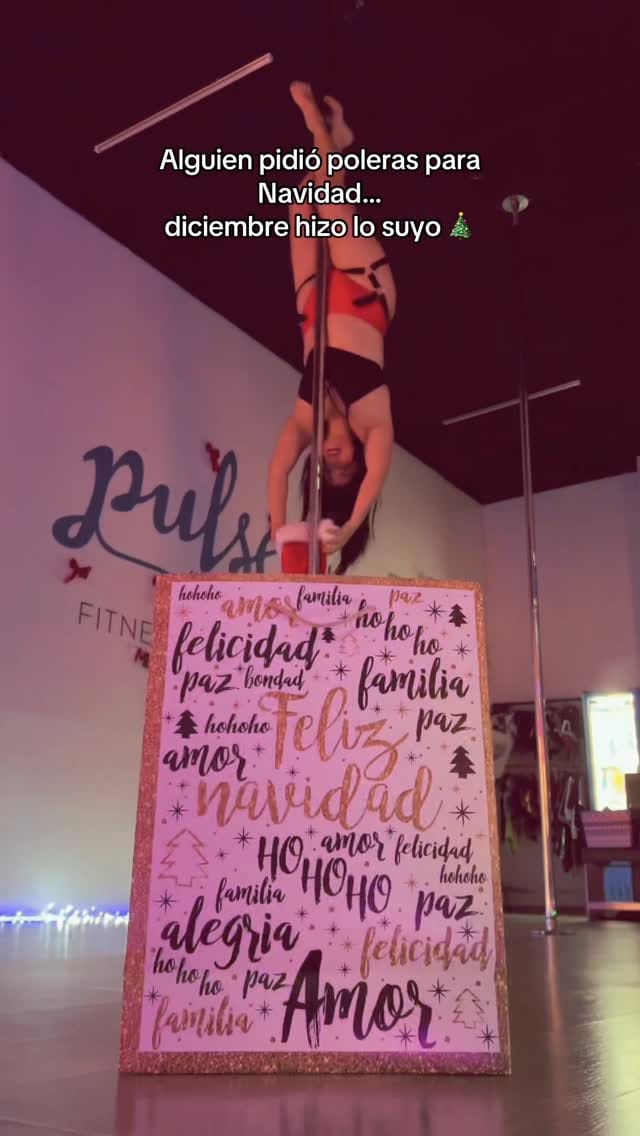 Alguien pidió poleras para
Navidad...
diciembre hizo lo suyo 🎄
Pulse
FITNE
hohoho familia paz
amor ho ho ho
felicidad
paz bondad familia
hohoho Feliz paz
amor
navidad
HO HO HO amor felicidad
hohoho
familia paz
alegria felicidad
ho ho ho paz Amor
familia